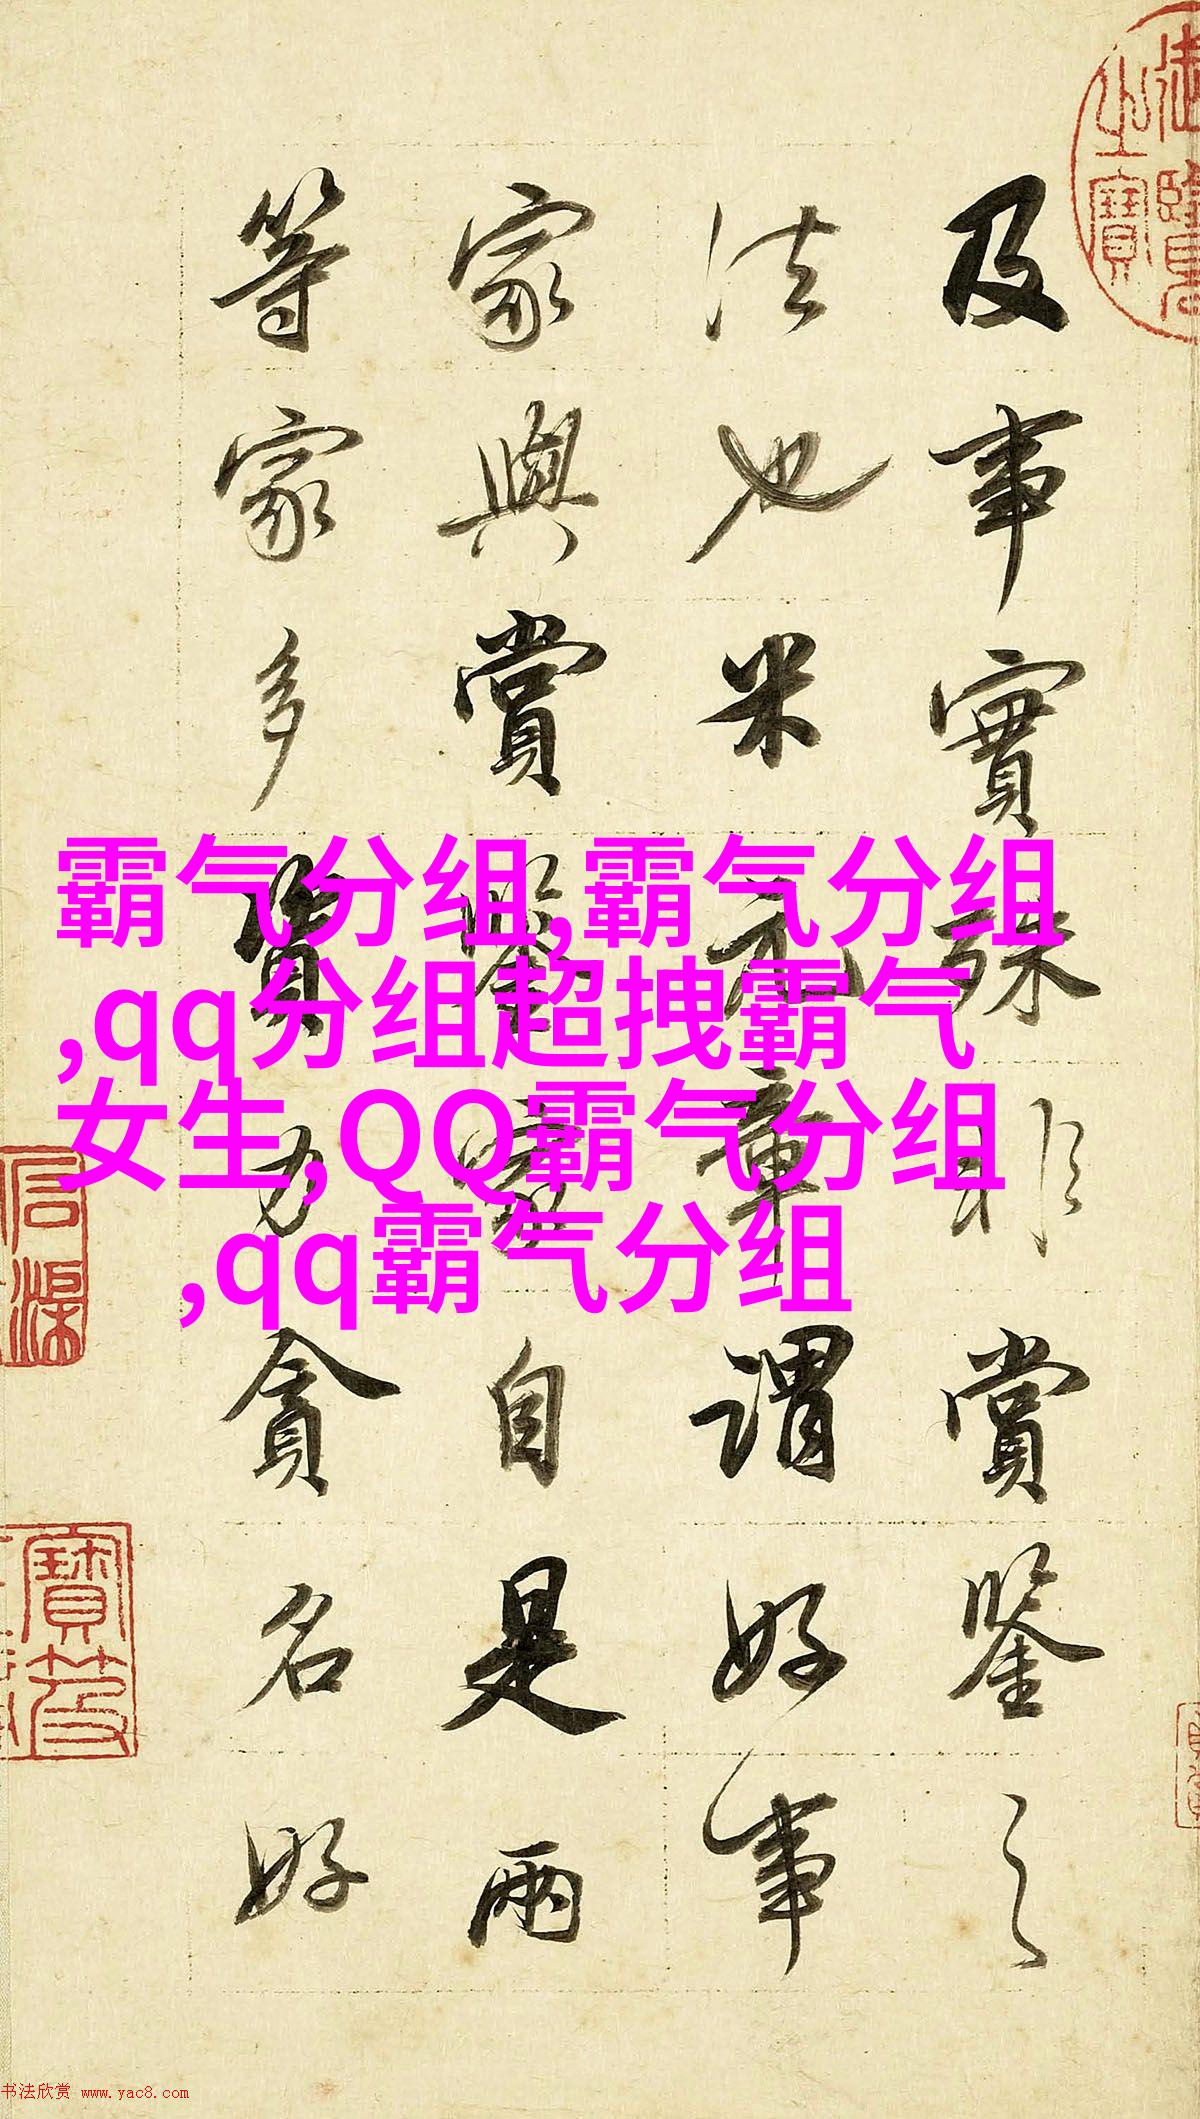 及事實殊非賞鑒之
法也米元章謂好事
家與賞鑒家自是兩
等家多資力貪名好
霸气分组,霸气分组
,qq分组超拽霸气
女生,QQ霸气分组
,qq霸气分组
书法欣赏 www.yac8.com